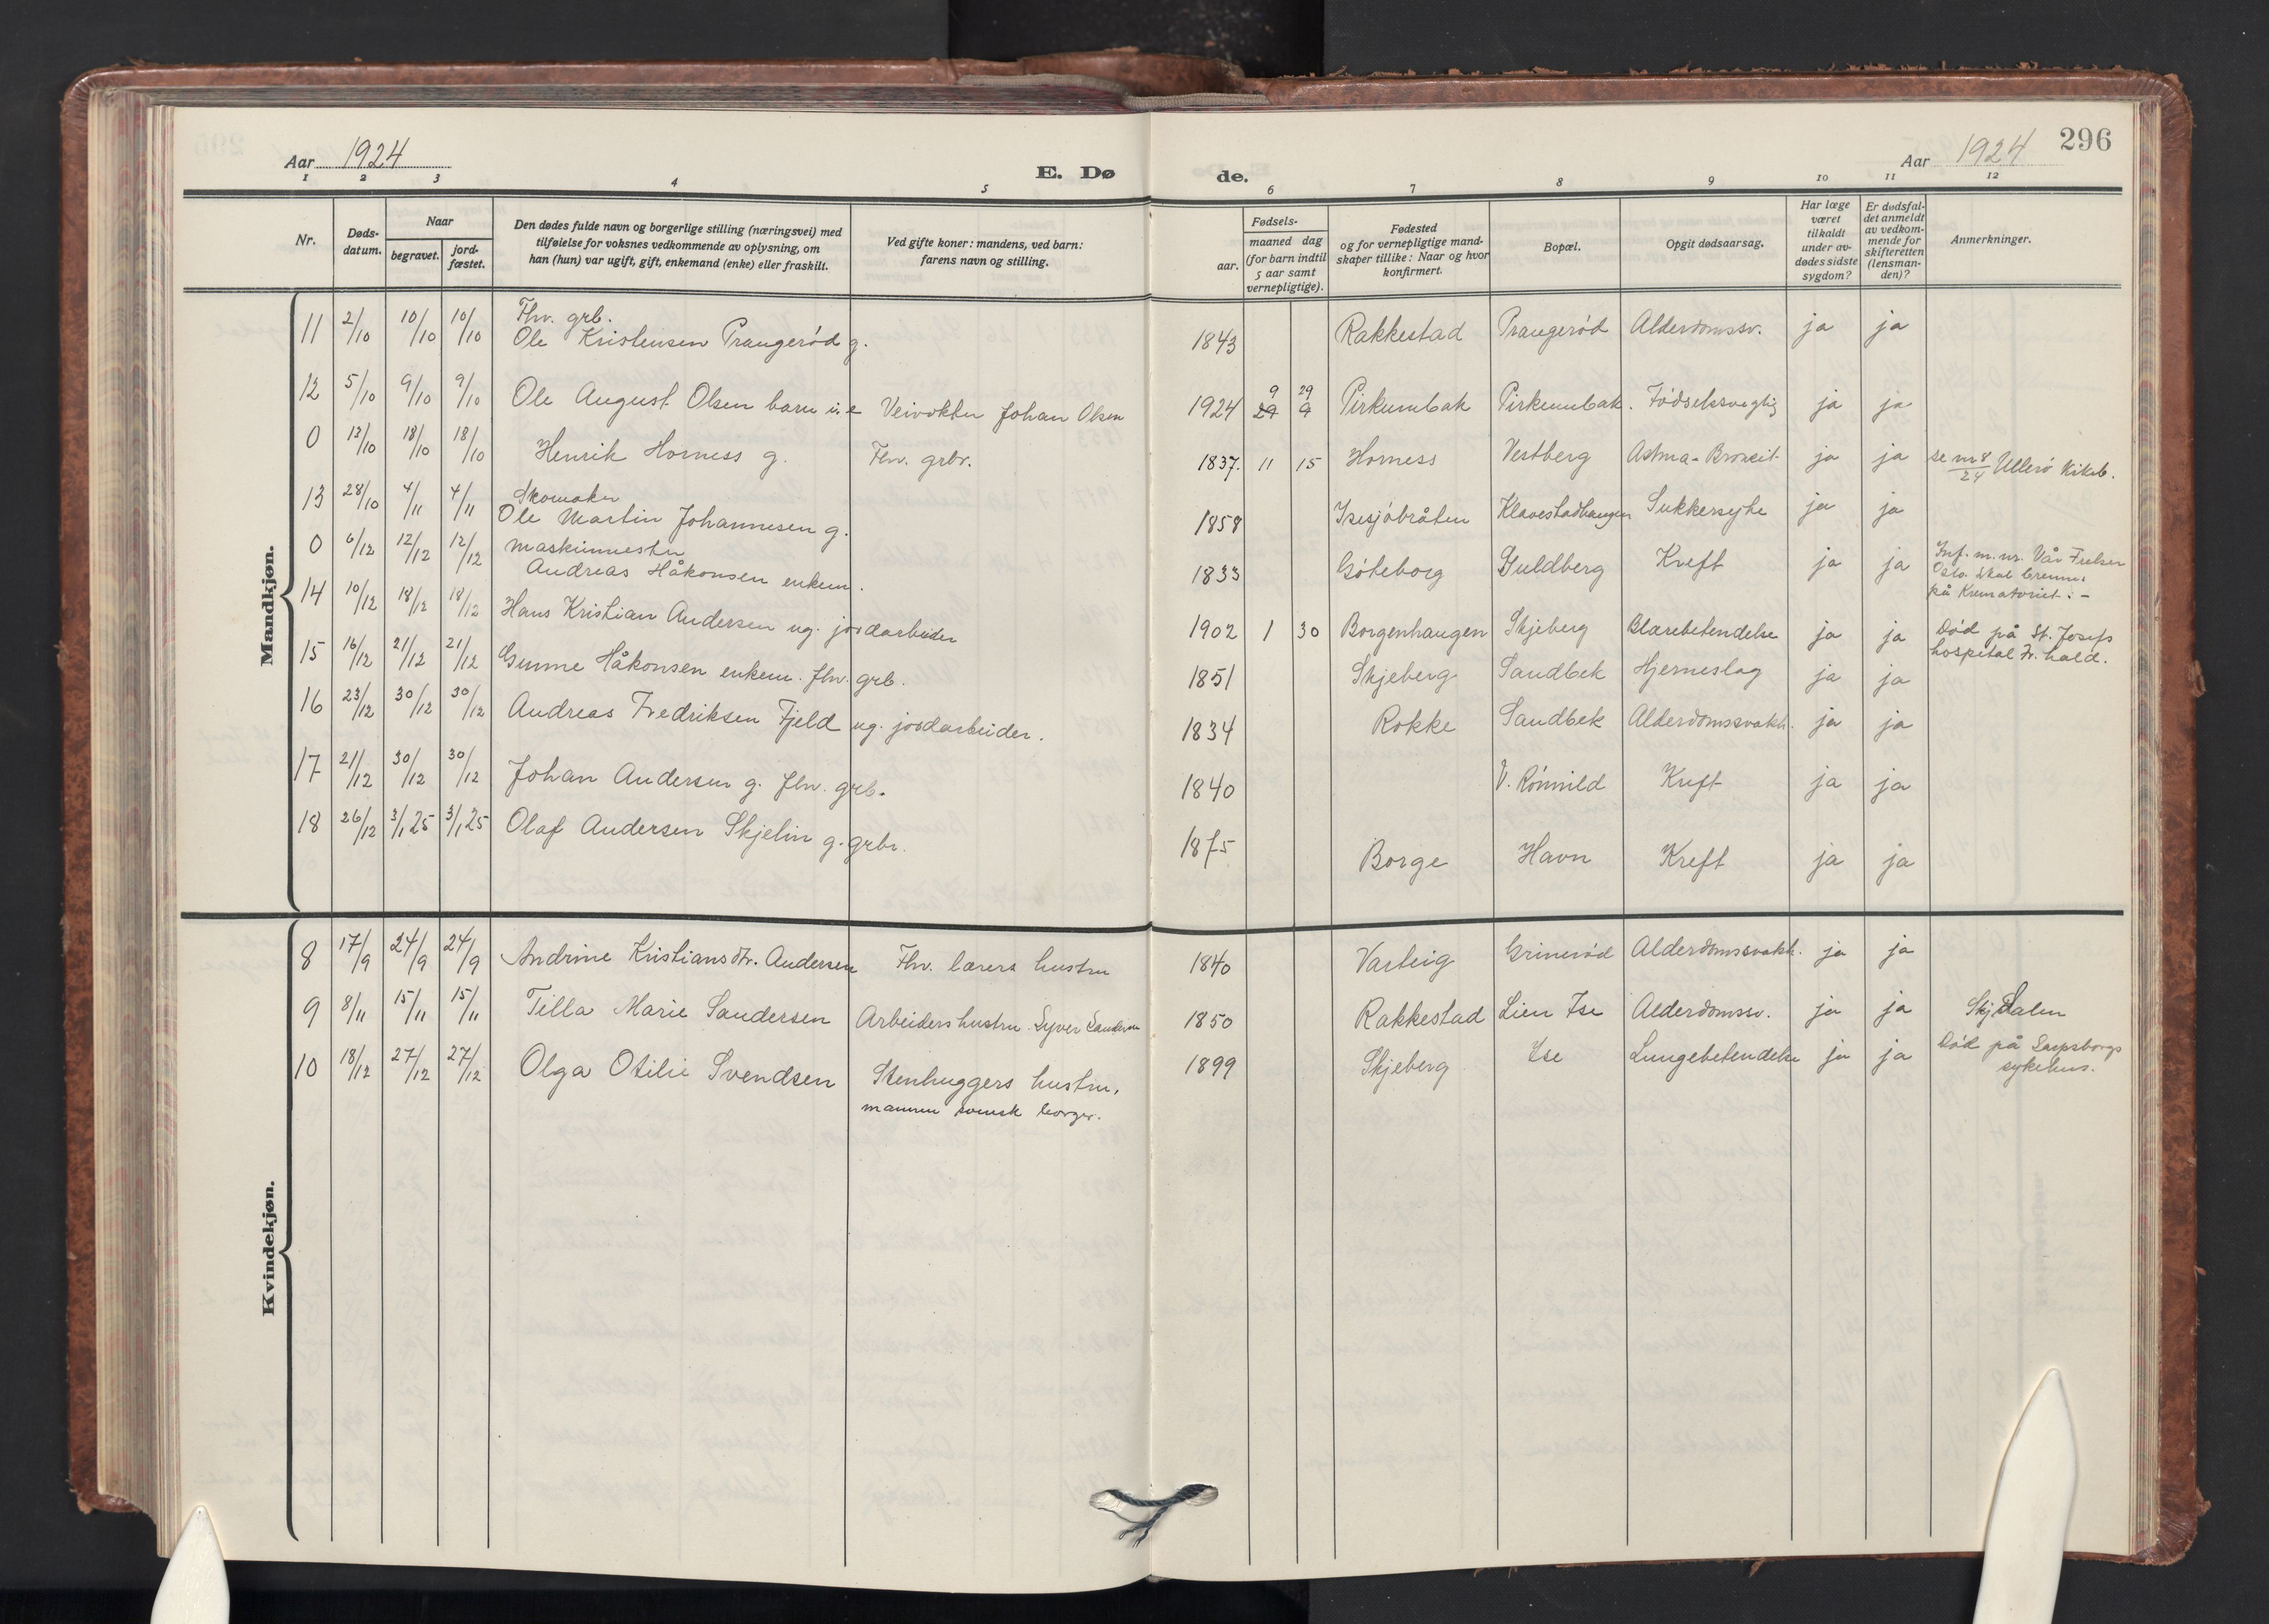 Aar 1924
E. Dø
de.
Aar 1924
296
1 2 3 4 5 6 7 8 9 10 11 12
Nr.
Døds-
datum.
Naar
begravet.
jord-
fæstet.
Den dødes fulde navn og borgerlige stilling (næringsvei) med
tilføielse for voksnes vedkommende av oplysning, om
han (hun) var ugift, gift, enkemand (enke) eller fraskilt.
Ved gifte koner: mandens, ved barn:
farens navn og stilling.
Fødsels-
aar.
maaned dag
(for barn indtil
5 aar samt
vernepligtige).
Fødested
og for vernepligtige mand-
skaper tillike: Naar og hvor
konfirmert.
Bopæl.
Opgit dødsaarsag.
Har læge
været
tilkaldt
under av-
dødes sidste
sygdom?
Er dødsfal-
det anmeldt
av vedkom-
mende for
skifteretten
(lensman-
den)?
Anmerkninger.
Mandkjøn.
Fhv. grb.
11 2/10 10/10 10/10 Ole Kristensen Prangerød g. 1843 Rakkestad Prangerød Alderdomssv. ja ja
9 29
12 5/10 9/10 9/10 Ole August Olsen barn i. e Veivokter Johan Olsen 1924 29 9 Pirkumbak Pirkumbak. Fødselssvaglig ja ja
0 13/10 18/10 18/10 Henrik Horness g. Fhv. grbr. 1837. 11 15 Horness Vestberg Astma-Broncit ja ja se nr 8/24 Ullerø Kikeb.
Skomaker
13 28/10 4/11 4/11 Ole Martin Johannesen g. 1858 Isesjøbråten Klavestadhaugen Sukkersyke ja ja
Maskinmester
0 6/12 12/12 12/12 Andreas Håkonsen enkem. 1833 Gøteborg Guldberg Kreft ja ja Inf. m. nr. Vår Frelser
Oslo. Skal brennes
på Krematoriet. -
14 10/12 18/12 18/12 Hans Kristian Andersen ug. jordarbeider 1902 1 30 Borgenhaugen Skjeberg Blærebetendelse ja ja Død på St. Josefs
hospital Fr.hald.
15 16/12 21/12 21/12 Gunne Håkonsen enkem. fhv. grb. 1851 Skjeberg Sandbek Hjerneslag ja ja
16 23/12 30/12 30/12 Andreas Fredriksen Fjeld ug. jordarbeider. 1834 Rokke Sandbek Alderdomssvakh. ja ja
17 21/12 30/12 30/12 Johan Andersen g. fhv. grb. 1840 V. Rønnild Kreft ja ja
18 26/12 3/1 25 3/1 25 Olaf Andersen Skjelin g. grbr. 1875 Borge Havn Kreft ja ja
Kvindekjøn.
8 17/9 24/9 24/9 Andrine Kristiansdtr. Andersen Fhv. lærers hustru 1840 Varteig Grinerød Alderdomssvakh. ja ja
9 8/11 15/11 15/11 Tilla Marie Sandersen Arbeiders hustru. Syver Sandersen 1850 Rakkestad Lien Ise Alderdomssv. ja ja Skjdalen
10 18/12 27/12 27/12 Olga Otilie Svendsen Stenhuggers hustru, 1899 Skjeberg Ise Lungebetendelse ja ja Død på Sarpsborgs
sykehus.
mannen svensk borger.